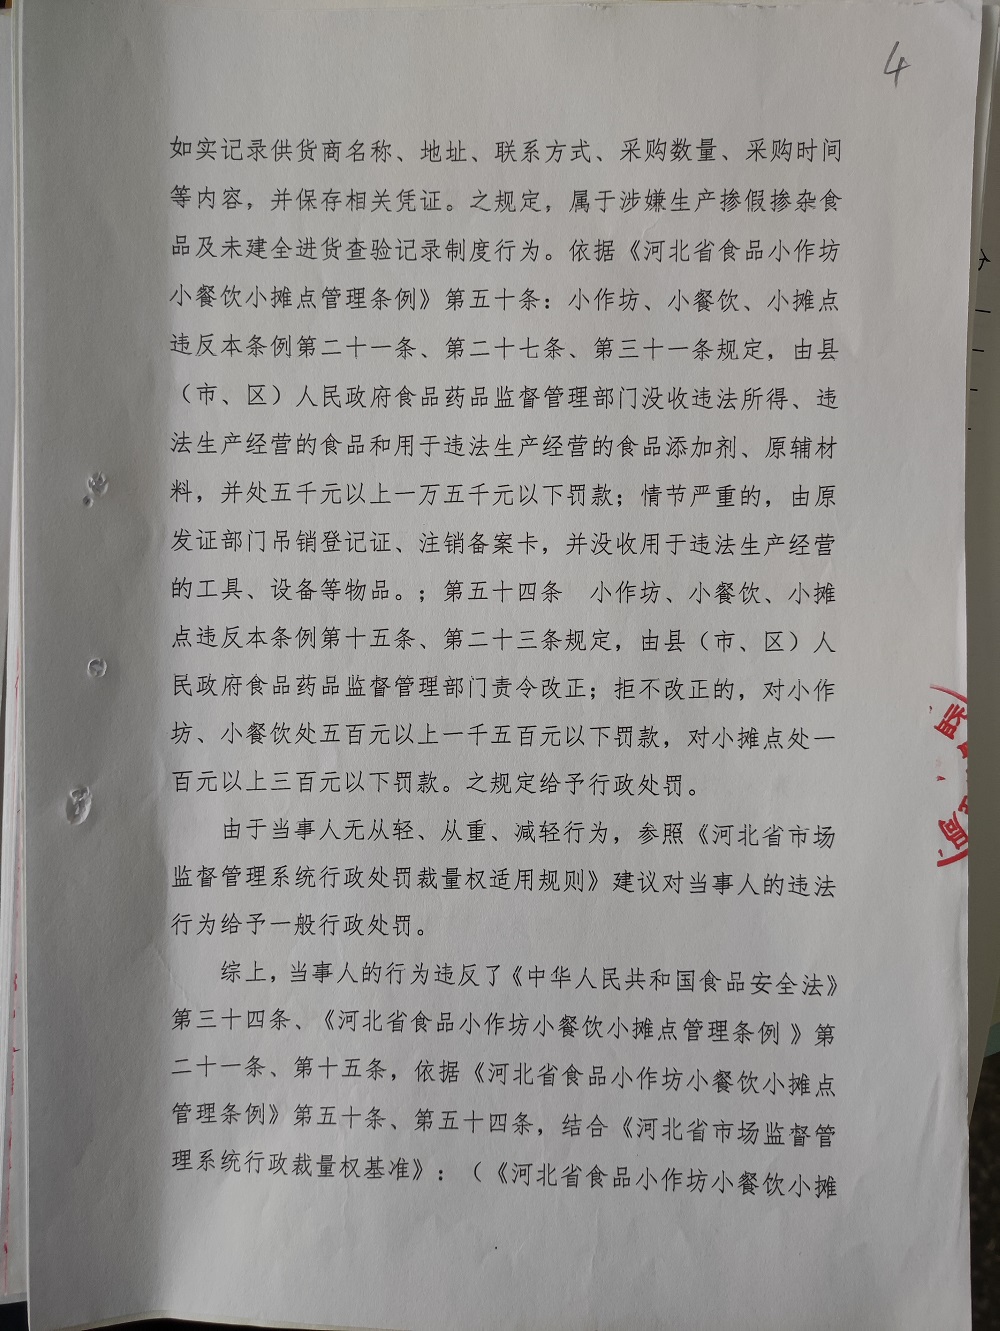 4
如实记录供货商名称、地址、联系方式、采购数量、采购时间
等内容，并保存相关凭证。之规定，属于涉嫌生产掺假掺杂食
品及未建全进货查验记录制度行为。依据《河北省食品小作坊
小餐饮小摊点管理条例》第五十条：小作坊、小餐饮、小摊点
违反本条例第二十一条、第二十七条、第三十一条规定，由县
（市、区）人民政府食品药品监督管理部门没收违法所得、违
法生产经营的食品和用于违法生产经营的食品添加剂、原辅材
料，并处五千元以上一万五千元以下罚款；情节严重的，由原
发证部门吊销登记证、注销备案卡，并没收用于违法生产经营
的工具、设备等物品。；第五十四条　小作坊、小餐饮、小摊
点违反本条例第十五条、第二十三条规定，由县（市、区）人
民政府食品药品监督管理部门责令改正；拒不改正的，对小作
坊、小餐饮处五百元以上一千五百元以下罚款，对小摊点处一
百元以上三百元以下罚款。之规定给予行政处罚。
由于当事人无从轻、从重、减轻行为，参照《河北省市场
监督管理系统行政处罚裁量权适用规则》建议对当事人的违法
行为给予一般行政处罚。
综上，当事人的行为违反了《中华人民共和国食品安全法》
第三十四条、《河北省食品小作坊小餐饮小摊点管理条例 》第
二十一条、第十五条，依据《河北省食品小作坊小餐饮小摊点
管理条例》第五十条、第五十四条，结合《河北省市场监督管
理系统行政裁量权基准》：（《河北省食品小作坊小餐饮小摊